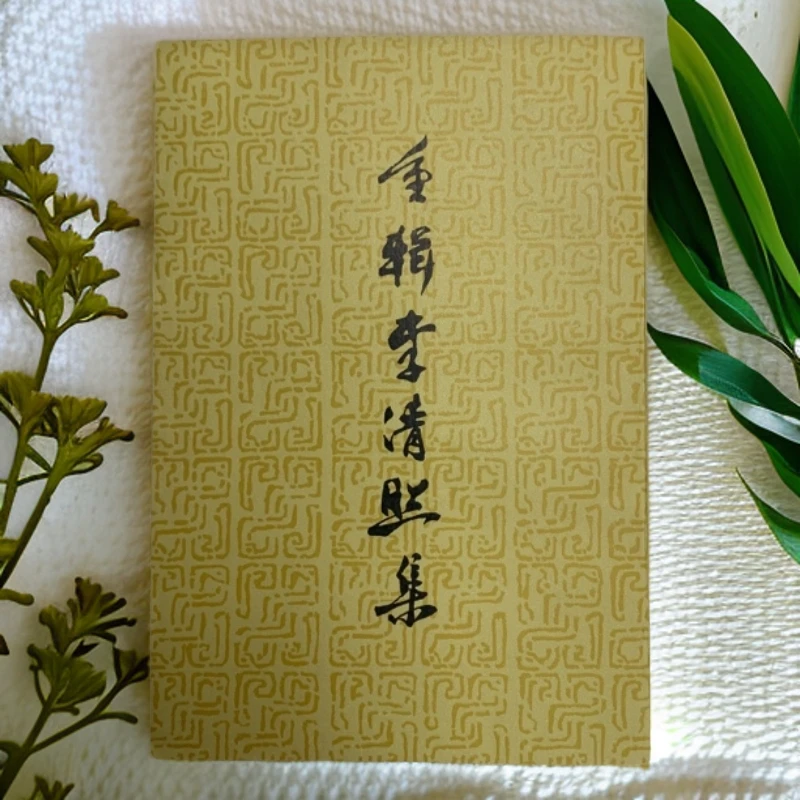 重輯李清照集